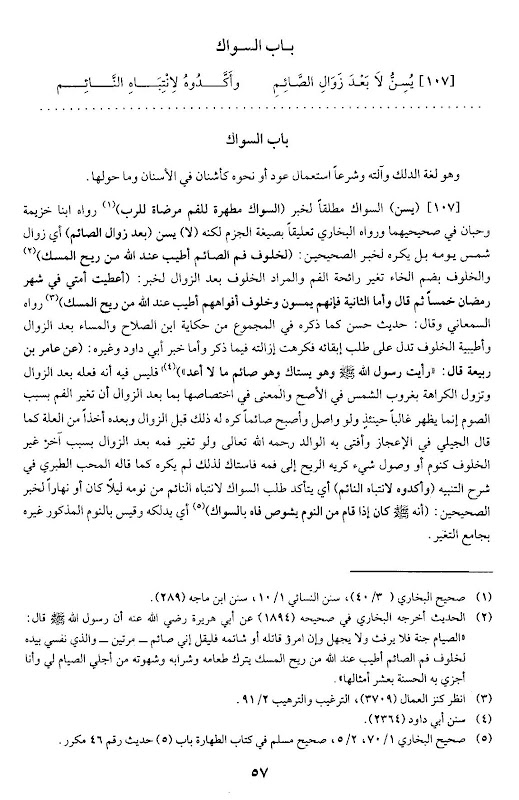 بـاب السـواك
[١٠٧] يُسَنُّ لَا بَعْدَ زَوَالِ الصَّائِمِ وأَكَّـدُوهُ لِانْتِبَـاهِ النَّـائِـمِ
باب السواك
وهو لغة الدلك وآلته وشرعاً استعمال عود أو نحوه كأشنان في الأسنان وما حولها.
[١٠٧] (يسن) السواك مطلقاً لخبر (السواك مطهرة للفم مرضاة للرب)(١) رواه ابنا خزيمة
وحبان في صحيحيهما ورواه البخاري تعليقاً بصيغة الجزم لكنه (لا) يسن (بعد زوال الصائم) أي زوال
شمس يومه بل يكره لخبر الصحيحين: (لخلوف فم الصائم أطيب عند الله من ريح المسك)(٢)
والخلوف بضم الخاء تغير رائحة الفم والمراد الخلوف بعد الزوال لخبر: (أعطيت أمتي في شهر
رمضان خمساً ثم قال وأما الثانية فإنهم يمسون وخلوف أفواههم أطيب عند الله من ريح المسك)(٣) رواه
السمعاني وقال: حديث حسن كما ذكره في المجموع من حكاية ابن الصلاح والمساء بعد الزوال
وأطيبية الخلوف تدل على طلب إبقائه فكرهت إزالته فيما ذكر وأما خبر أبي داود وغيره: (عن عامر بن
ربيعة قال: «رأيت رسول الله ﷺ وهو يستاك وهو صائم ما لا أعد»)(٤) فليس فيه أنه فعله بعد الزوال
وتزول الكراهة بغروب الشمس في الأصح والمعنى في اختصاصها بما بعد الزوال أن تغير الفم بسبب
الصوم إنما يظهر غالباً حينئذٍ ولو واصل وأصبح صائماً كره له ذلك قبل الزوال وبعده أخذاً من العلة كما
قال الجيلي في الإعجاز وأفتى به الوالد رحمه الله تعالى ولو تغير فمه بعد الزوال بسبب آخر غير
الخلوف كنوم أو وصول شيء كريه الريح إلى فمه فاستاك لذلك لم يكره كما قاله المحب الطبري في
شرح التنبيه (وأكدوه لانتباه النائم) أي يتأكد طلب السواك لانتباه النائم من نومه ليلاً كان أو نهاراً لخبر
الصحيحين: (أنه ﷺ كان إذا قام من النوم يشوص فاه بالسواك)(٥) أي يدلكه وقيس بالنوم المذكور غيره
بجامع التغير.
(١) صحيح البخاري (٣/ ٤٠)، سنن النسائي ١/ ١٠، سنن ابن ماجه (٢٨٩).
(٢) الحديث أخرجه البخاري في صحيحه (١٨٩٤) عن أبي هريرة رضي الله عنه أن رسول الله ﷺ قال:
«الصيام جنة فلا يرفث ولا يجهل وإن امرؤ قاتله أو شاتمه فليقل إني صائم ــ مرتين ــ والذي نفسي بيده
لخلوف فم الصائم أطيب عند الله من ريح المسك يترك طعامه وشرابه وشهوته من أجلي الصيام لي وأنا
أجزي به الحسنة بعشر أمثالها».
(٣) انظر كنز العمال (٣٧٠٩)، الترغيب والترهيب ٢/ ٩١.
(٤) سنن أبي داود (٢٣٦٤).
(٥) صحيح البخاري ١/ ٧٠، ٢/ ٥، صحيح مسلم في كتاب الطهارة باب (٥) حديث رقم ٤٦ مكرر.
٥٧